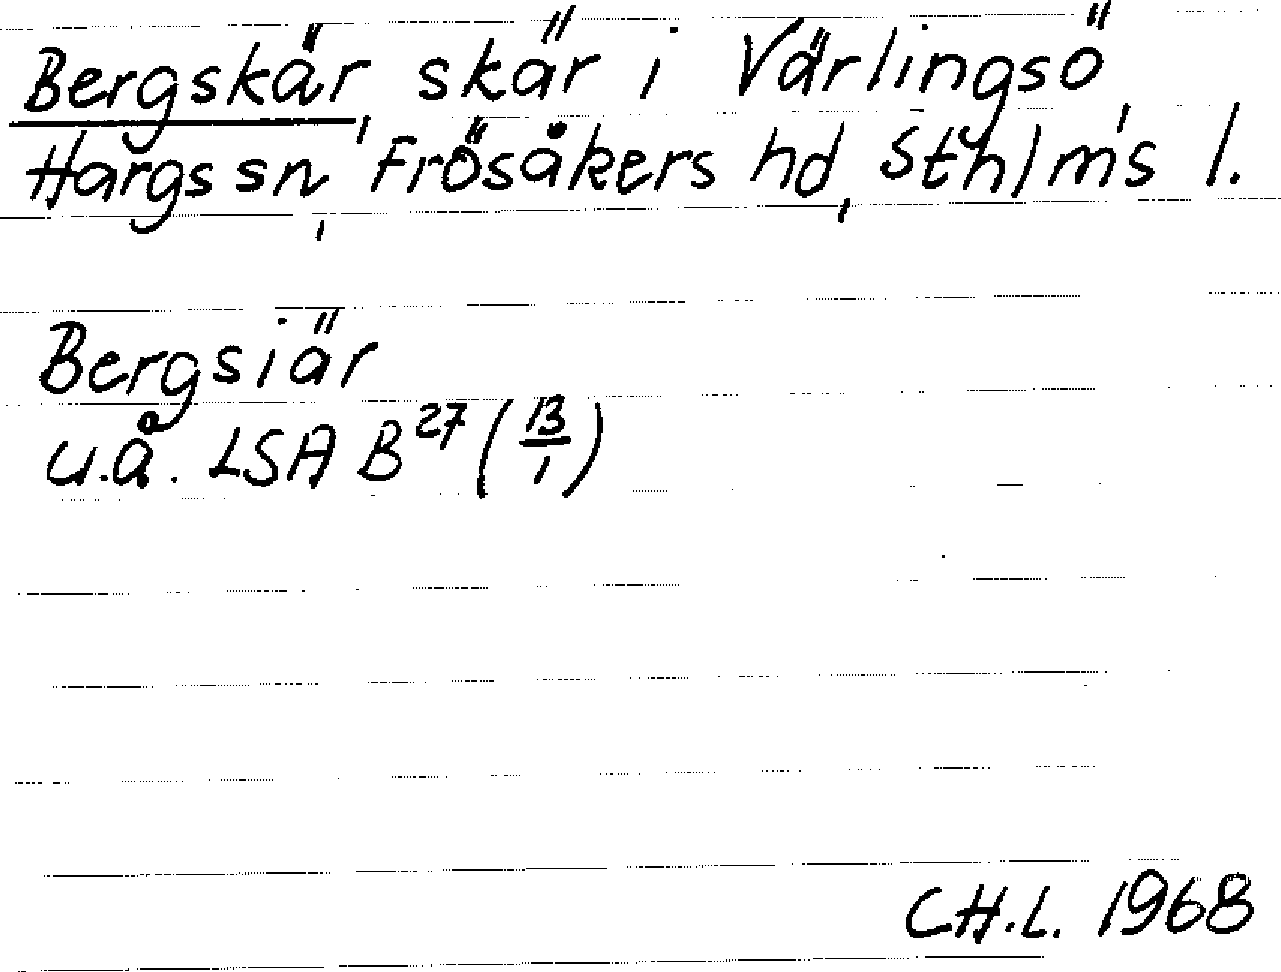 Bergskär, skär i Värlingsö
Hargs sn, Frösåkers hd, Sthlm's l.
Bergsiär
u.å. LSA B27 (13/1)
C.H.L. 1968